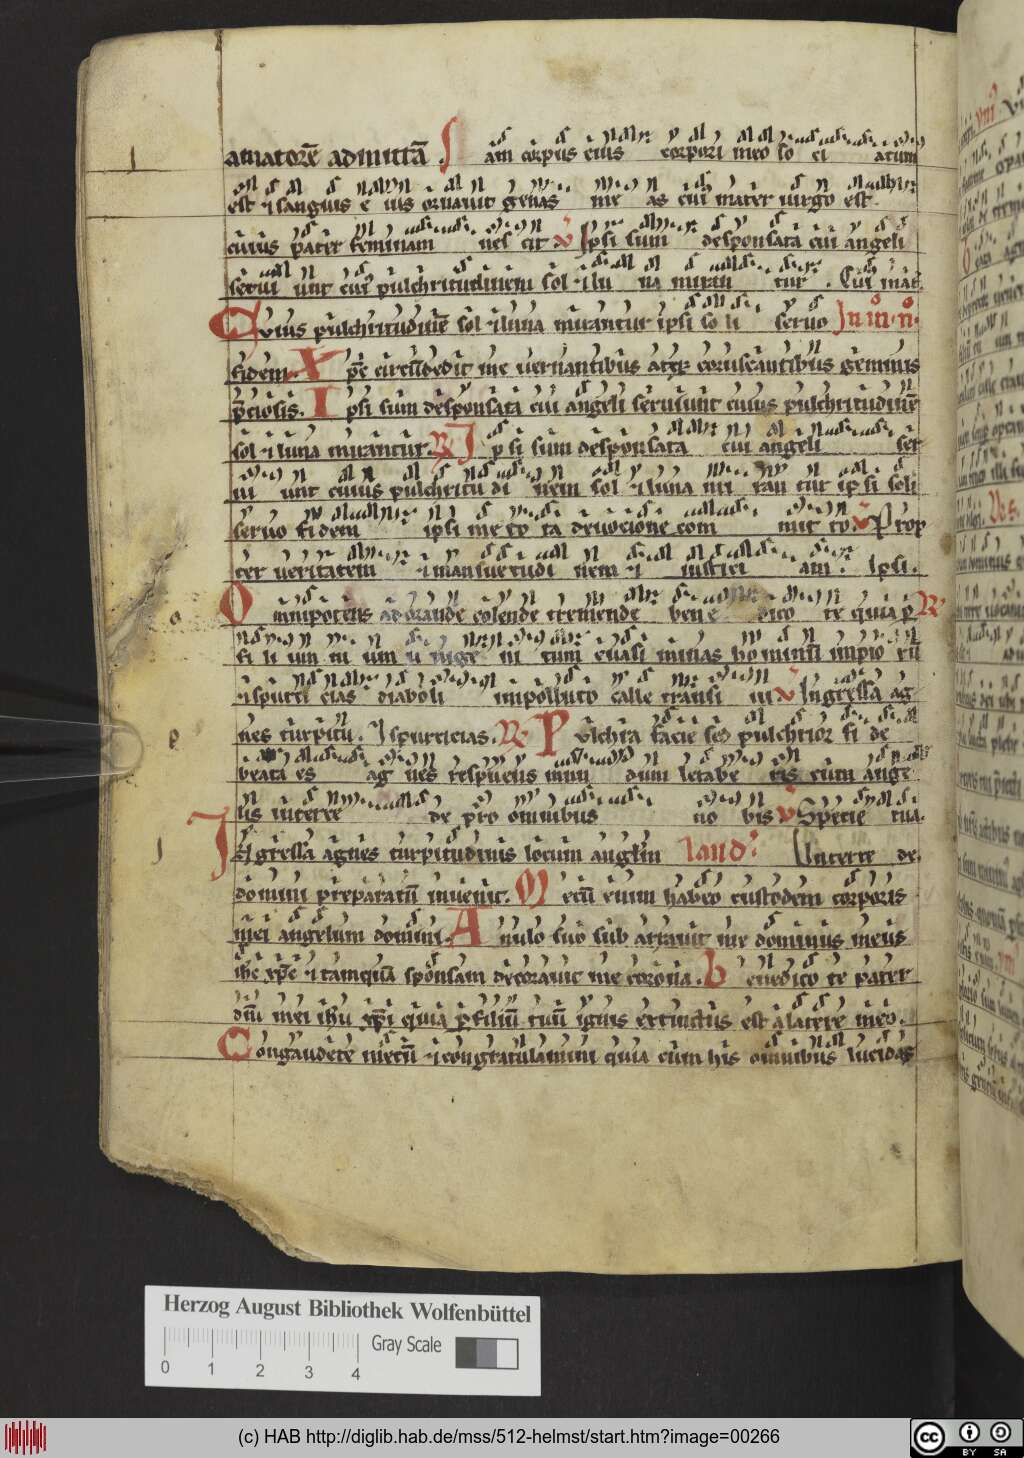 amatorē admittā. S am corpus eius corpori meo so ci atum
est ⁊ sanguis e ius ornauit genas me as cui' mater uirgo est.
cuius pater feminam nes cit V Ipsi sum desponsata cui angeli
serui unt cui' pulchritudinem sol ⁊ lu na miran tur. Cui' mat'.
Cuius pulchritudinē sol ⁊ luna mirantur ipsi so li seruo In iii. n°.
fidem. X pc̄ circūdedit me uernantibus atqꝫ coruscantibus gemmis
p̄ciosis. I psi sum desponsata cui angeli seruiunt cuius pulchritudinē
sol ⁊ luna mirantur. R I psi sum desponsata cui angeli ser
ui unt cuius pulchritu di nem sol ⁊ luna mi ran tur ip si soli
seruo fidem ipsi me to ta deuocione com mit to V Prop
ter ueritatem ⁊ mansuetudi nem ⁊ iustici am. Ipsi.
O mnipotens adorande colende tremende ben e dico te quia p R
fi li um tu um u nige ni tum euasi minas ho minū impio rū
⁊ spurci cias diaboli impolluto calle transi ui V Ingressa ag
nes turpitu. I spurticias. R P ulchra facie sed pulchrior fi de
beata es ag nes respuens mun dum letabe ris cum ange
lis interce de pro omnibus no bis V Specie tua.
I ngressa agnes turpitudinis locum anglm̄ laud' Interce de.
domini preparatū inuenit. M ecū enim habeo custodem corporis
mei angelum domini. A nulo suo sub arrauit me dominus meus
ih̄c xp̄c ⁊ tamquā sponsam decorauit me corona. b enedico te pater
dn̄i mei ih̄u xp̄i quia p filiū tuū ignis extinctus est a latere meo.
Congaudete mecū ⁊ congratulamini quia cum his omnibus lucidas
Herzog August Bibliothek Wolfenbüttel
Gray Scale
0 1 2 3 4
(c) HAB http://diglib.hab.de/mss/512-helmst/start.htm?image=00266
cc BY SA